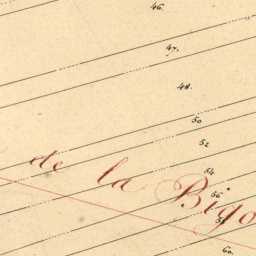 46.
47.
48.
50
52
54
56
58
60.
de la Bigo